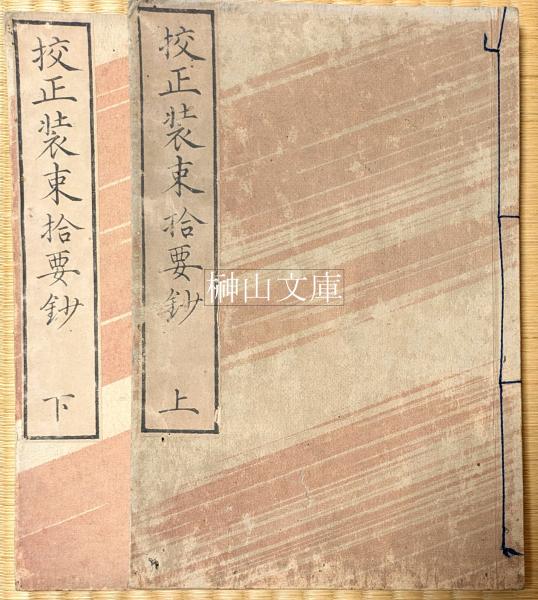 挍正装束拾要鈔 上
挍正装束拾要鈔 下
榊山文庫